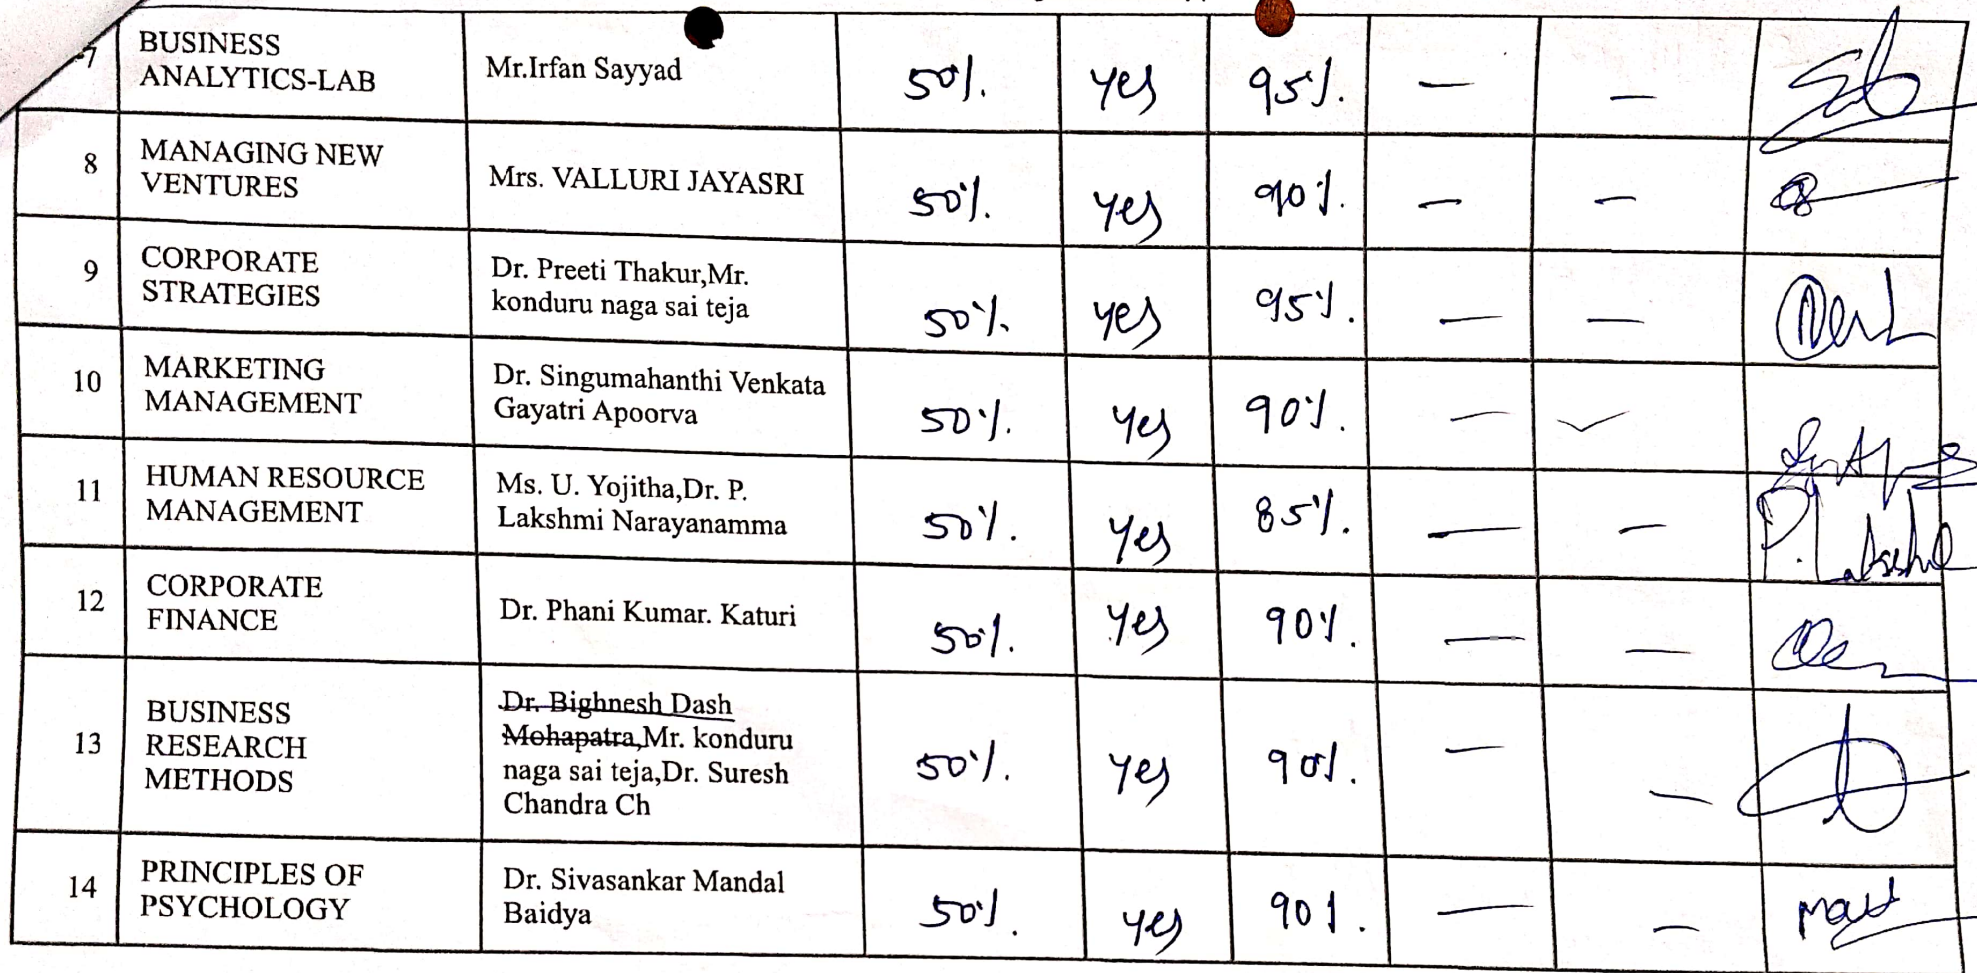 7 BUSINESS ANALYTICS-LAB Mr.Irfan Sayyad 50%. yes 95%. — —
8 MANAGING NEW VENTURES Mrs. VALLURI JAYASRI 50%. yes 90%. — —
9 CORPORATE STRATEGIES Dr. Preeti Thakur,Mr. konduru naga sai teja 50%. yes 95%. — —
10 MARKETING MANAGEMENT Dr. Singumahanthi Venkata Gayatri Apoorva 50%. yes 90%. —
11 HUMAN RESOURCE MANAGEMENT Ms. U. Yojitha,Dr. P. Lakshmi Narayanamma 50%. yes 85%. — — P. Lakshmi
12 CORPORATE FINANCE Dr. Phani Kumar. Katuri 50%. yes 90%. — —
13 BUSINESS RESEARCH METHODS Dr. Bighnesh Dash Mohapatra,Mr. konduru naga sai teja,Dr. Suresh Chandra Ch 50%. yes 90%. — —
14 PRINCIPLES OF PSYCHOLOGY Dr. Sivasankar Mandal Baidya 50%. yes 90%. — —